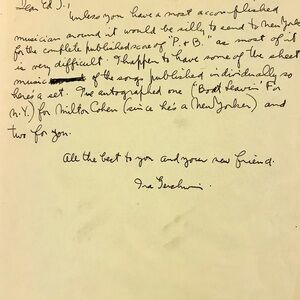 Dear Ed J.,
Unless you have a most accomplished
musician around it would be silly to send to New York
for the complete published score of "P. & B." as most of it
is very difficult. I happen to have some of the sheet
music of the songs published individually so
here's a set. I've autographed one ("Boat Leavin' For
N.Y.) for Milton Cohen (since he's a New Yorker) and
two for you.
All the best to you and your new friend.
Ira Gershwin